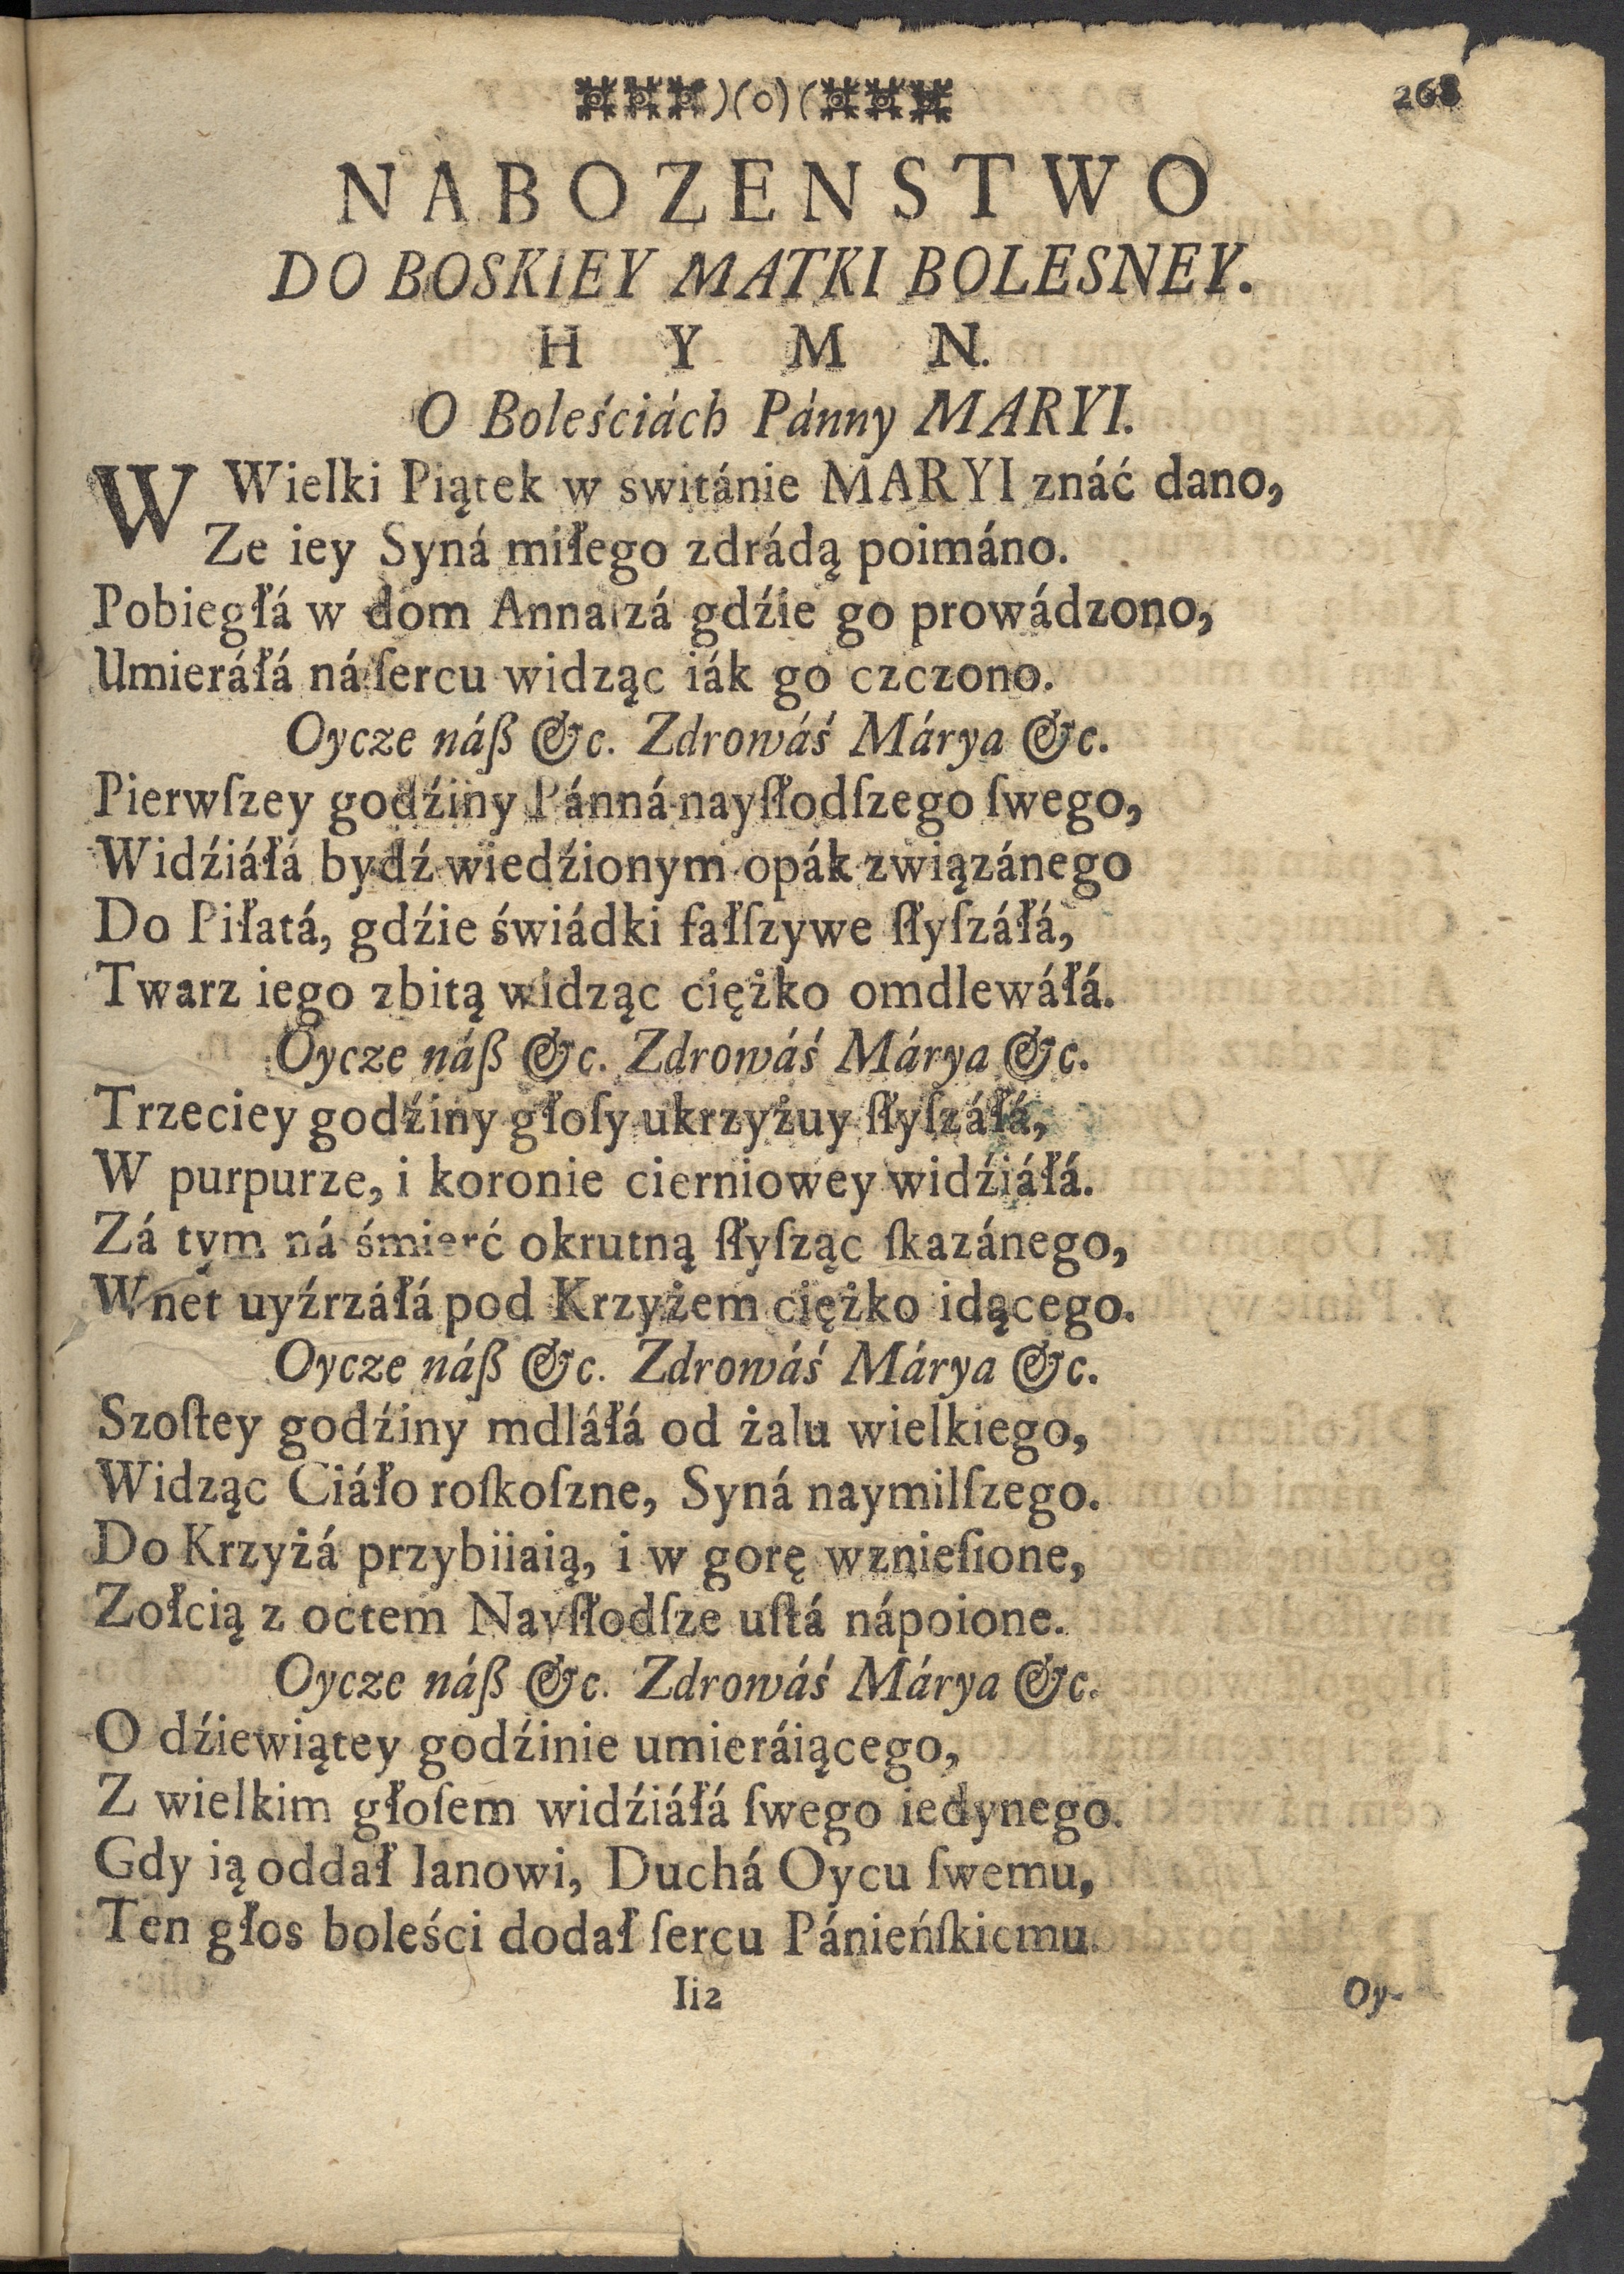 )(o)( 268
NABOZENSTWO
DO BOSKIEY MATKI BOLESNEY.
HYMN.
O Boleściách Pánny MARYI.
W Wielki Piątek w switánie MARYI znáć dano,
Ze iey Syná miłego zdrádą poimáno.
Pobiegłá w dom Annaszá gdźie go prowádzono,
Umieráłá ná ſercu widząc iák go czczono.
Oycze náß &c. Zdrowáś Márya &c.
Pierwſzey godźiny Pánná nayſłodſzego ſwego,
Widźiáłá bydź wiedźionym opák związánego
Do Piłatá, gdźie świádki fałſzywe ſłyſzáłá,
Twarz iego zbitą widząc ciężko omdlewáłá.
Oycze náß &c. Zdrowáś Márya &c.
Trzeciey godźiny głoſy ukrzyżuy ſłyſzáłá,
W purpurze, i koronie cierniowey widźiáłá.
Zá tym ná śmierć okrutną ſłyſząc ſkazánego,
Wnet uyźrzáłá pod Krzyżem ciężko idącego.
Oycze náß &c. Zdrowáś Márya &c.
Szoſtey godźiny mdláłá od żalu wielkiego,
Widząc Ciáło roſkoſzne, Syná naymilſzego.
Do Krzyżá przybiiaią, i w gorę wznieſione,
Zołcią z octem Nayſłodſze uſtá nápoione.
Oycze náß &c. Zdrowáś Márya &c.
O dźiewiątey godźinie umieráiącego,
Z wielkim głoſem widźiáłá ſwego iedynego.
Gdy ią oddał Ianowi, Duchá Oycu ſwemu,
Ten głos boleści dodał ſercu Pánieńſkiemu.
Ii2 Oy-